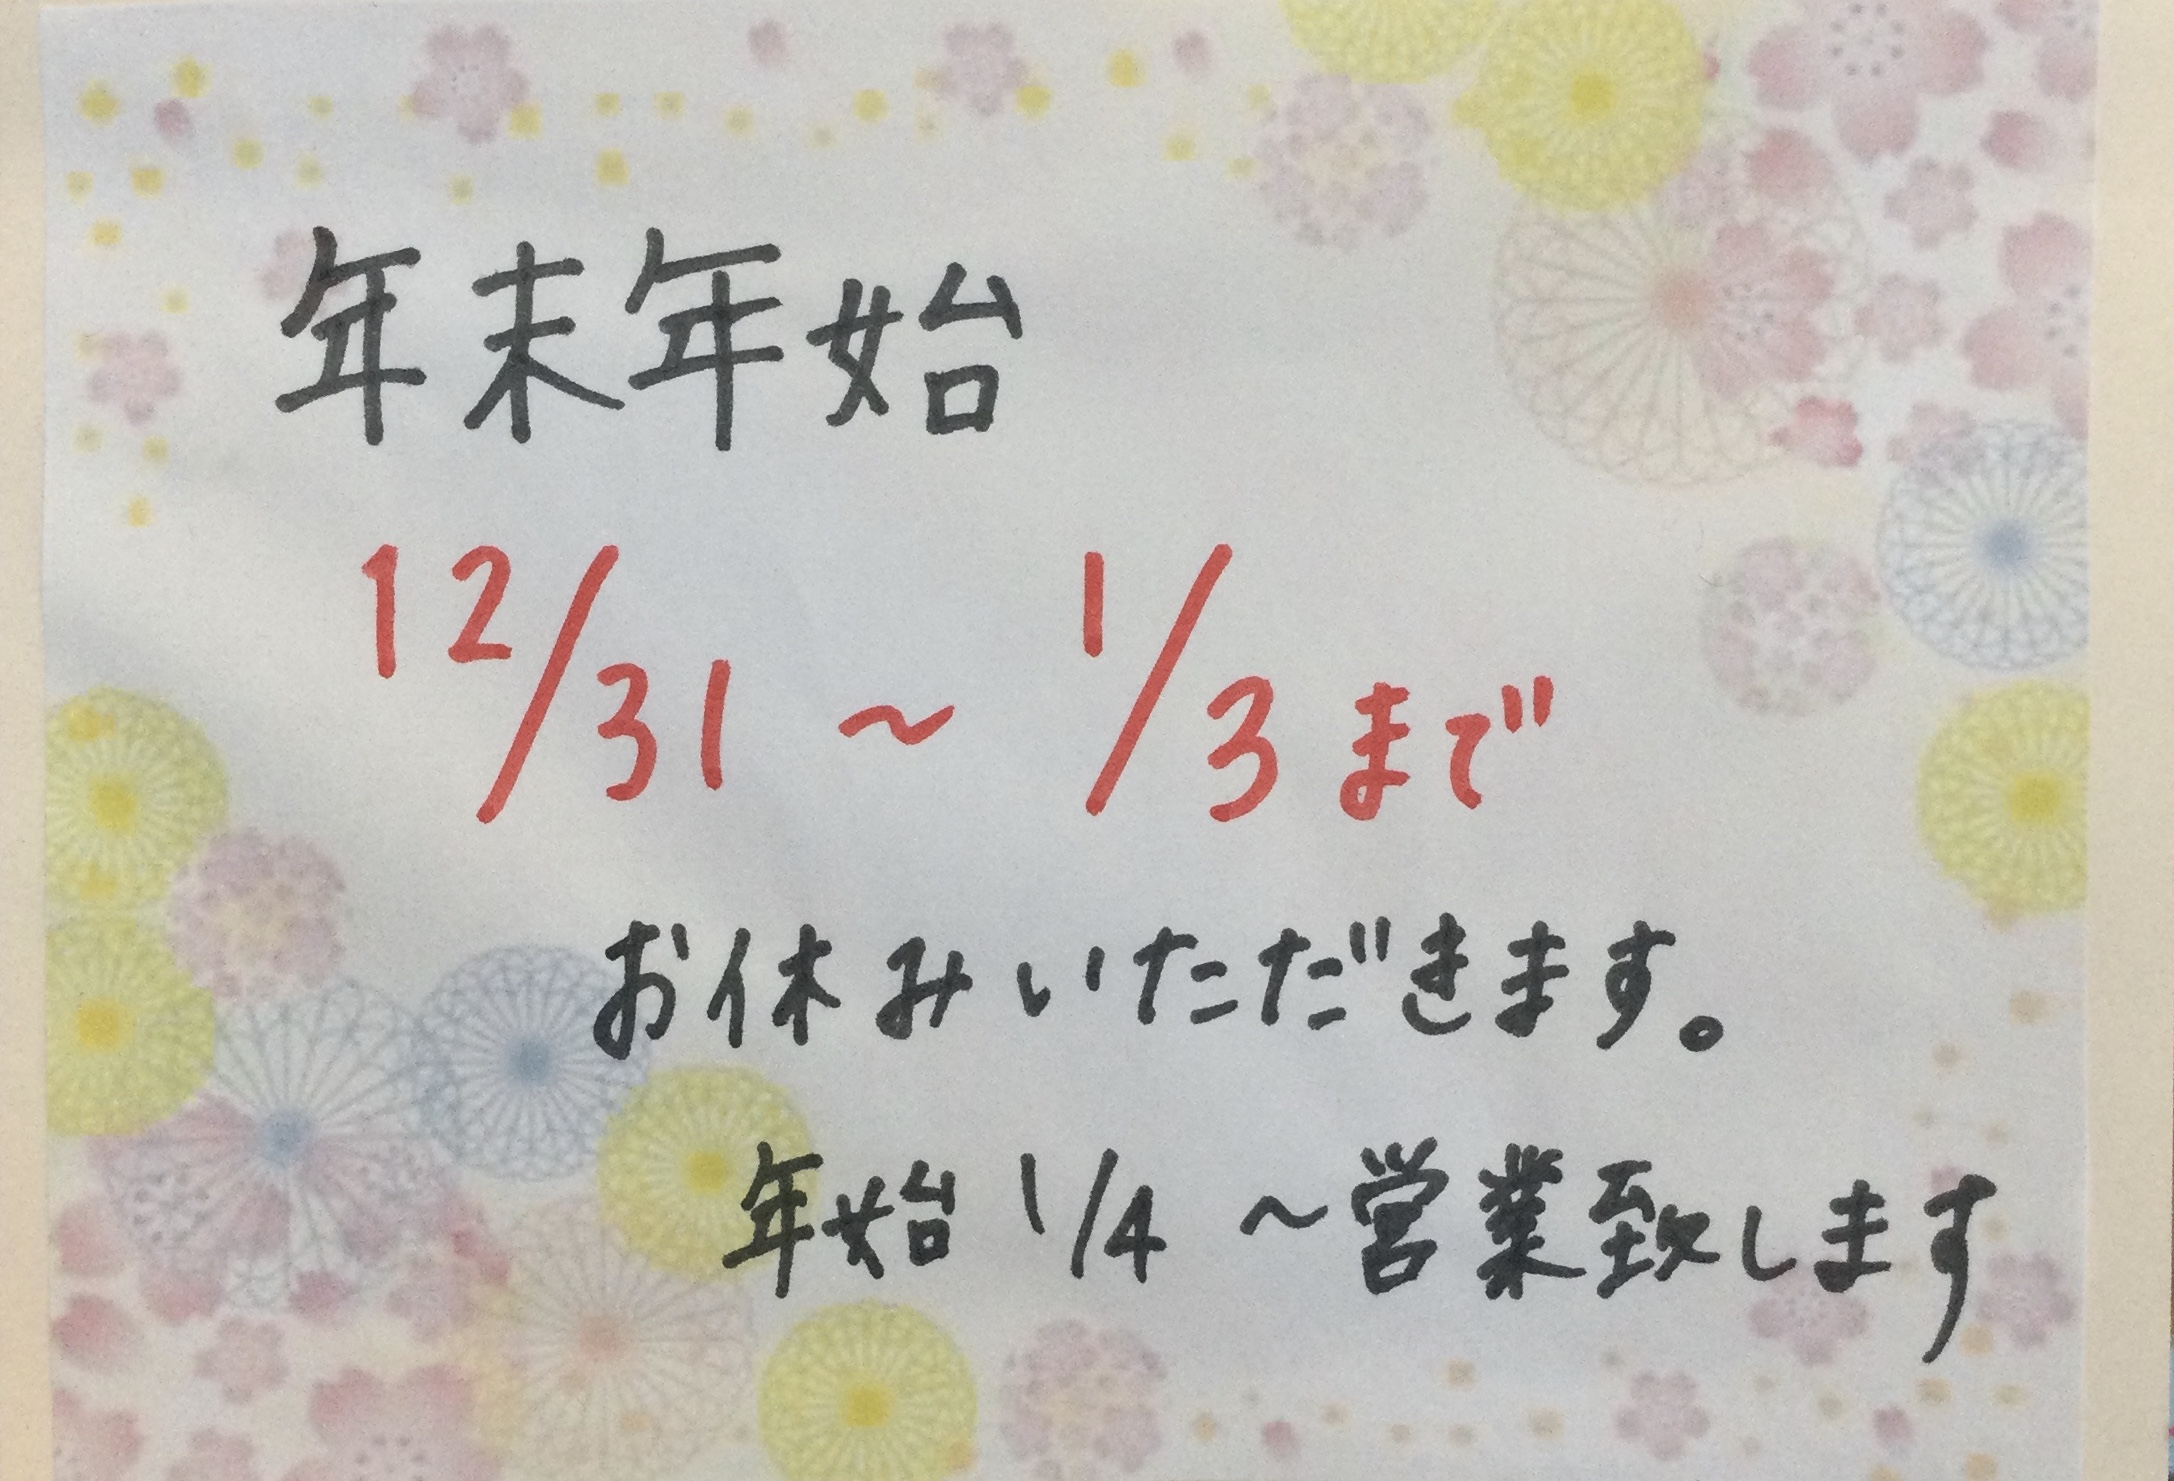 年末年始
12/31 ～ 1/3 まで
お休みいただきます。
年始 1/4 ～営業致します